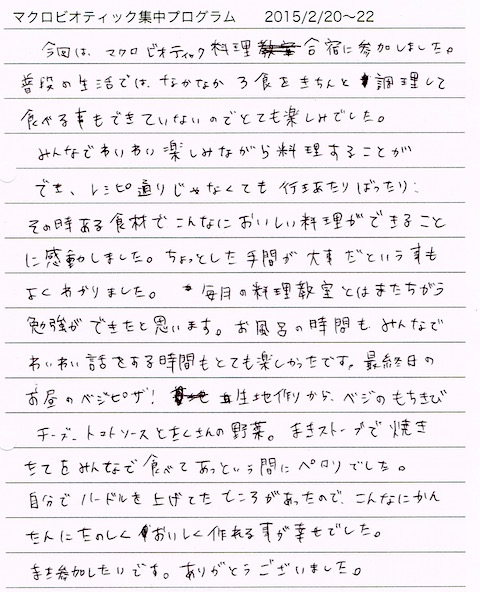 マクロビオティック集中プログラム 2015/2/20〜22
今回は、マクロビオティック料理合宿に参加しました。
普段の生活では、なかなか3食をきちんと調理して
食べる事もできていないのでとても楽しみでした。
みんなでわいわい楽しみながら料理することが
でき、レシピ通りじゃなくても行きあたりばったり、
その時ある食材でこんなにおいしい料理ができること
に感動しました。ちょっとした手間が大事だという事も
よくわかりました。毎月の料理教室とはまたちがう
勉強ができたと思います。お風呂の時間もみんなで
わいわい話をする時間もとても楽しかったです。最終日の
お昼のベジピザ!生地作りから、ベジのもちきび
チーズ、トマトソースとたくさんの野菜。まきストーブで焼き
たてをみんなで食べてあっという間にペロリでした。
自分でハードルを上げてたところがあったので、こんなにかん
たんにたのしくおいしく作れる事が幸せでした。
また参加したいです。ありがとうございました。